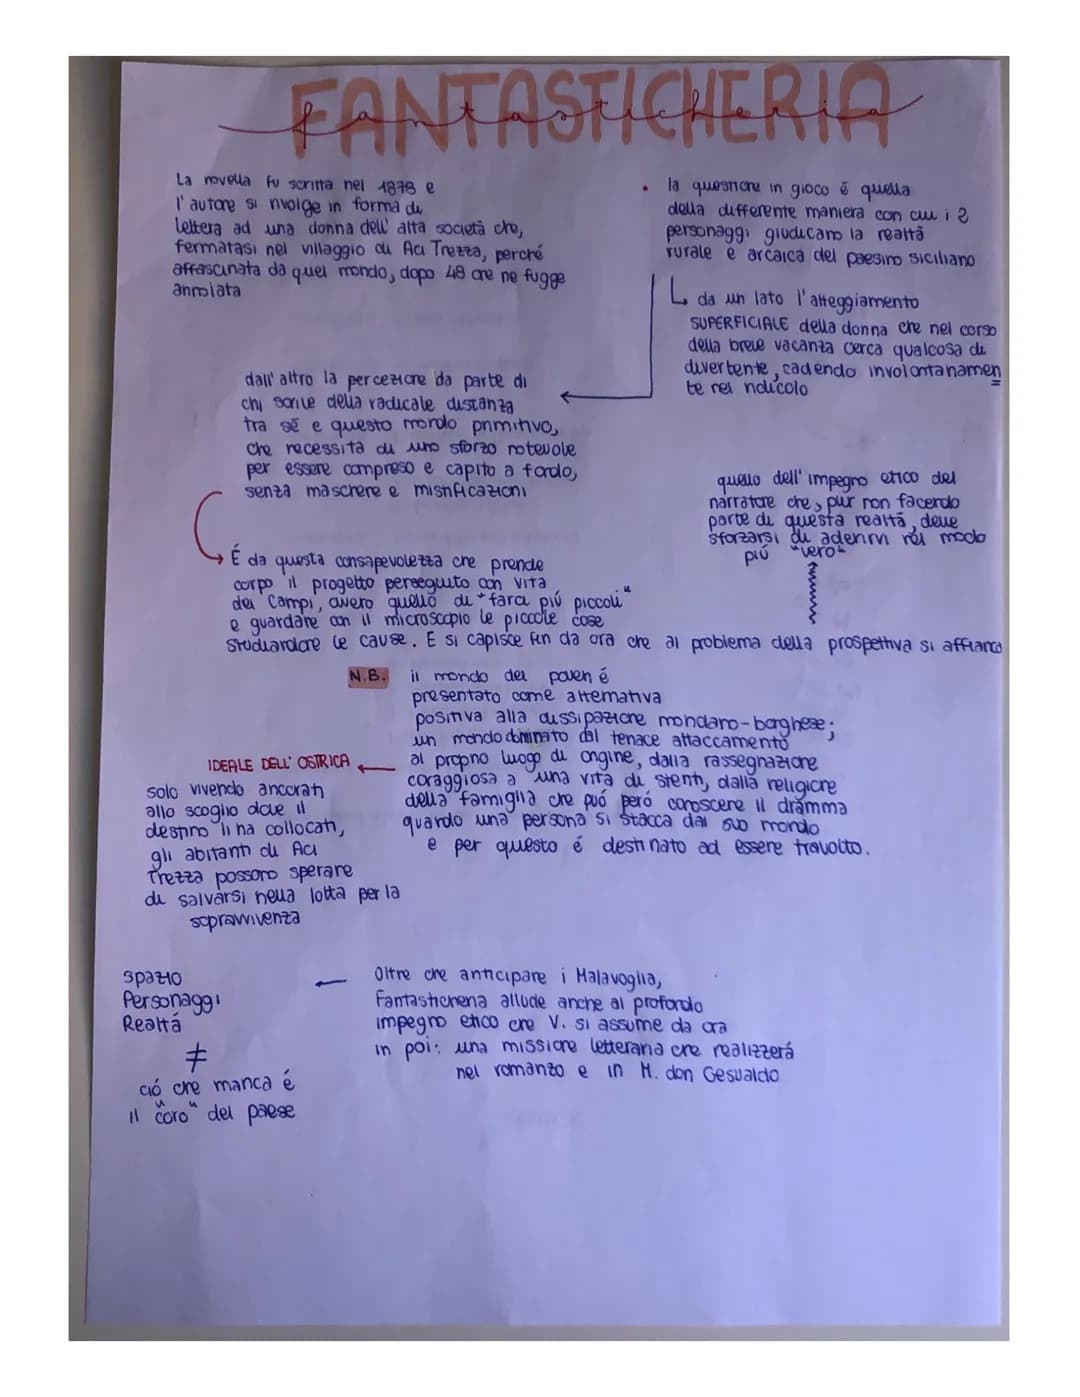 FANTASTICHERIA
fantasticheria
La novella fu scritta nel 1878 e
l'autore si rivolge in forma di
lettera ad una donna dell'alta società che,
fermatasi nel villaggio di Aci Trezza, perché
affascinata da quel mondo, dopo 48 ore ne fugge
annoiata
• la questione in gioco é quella
della differente maniera con cui i 2
personaggi giudicano la realtá
rurale e arcaica del paesino siciliano
da un lato l'atteggiamento
SUPERFICIALE della donna che nel corso
della breve vacanza cerca qualcosa di
divertente, cadendo involontariamen
te nel ridicolo
dall'altro la percezione da parte di
chi scrive della radicale distanza
tra sé e questo mondo primitivo,
che necessita di uno sforzo notevole
per essere compreso e capito a fondo,
senza maschere e mistificazioni
É da questa consapevolezza che prende
corpo il progetto perseguito con Vita
dei Campi, ovvero quello di "farci piú piccoli"
e guardare con il microscopio le piccole cose
studiandone le cause. E si capisce fin da ora che al problema della prospettiva si affianca
quello dell'impegno etico del
narratore che, pur non facendo
parte di questa realtá, deve
sforzarsi di aderirvi nel modo
piú "vero"
N.B. il mondo dei poveri é
presentato come alternativa
positiva alla dissipazione mondano-borghese;
un mondo dominato dal tenace attaccamento
al proprio luogo di origine, dalla rassegnazione
coraggiosa a una vita di stenti, dalla religione
della famiglia che puó peró conoscere il dramma
quando una persona si stacca dal suo mondo
e per questo é destinato ad essere travolto.
IDEALE DELL'OSTRICA
solo vivendo ancorati
allo scoglio dove il
destino li ha collocati,
gli abitanti di Aci
Trezza possono sperare
di salvarsi nella lotta per la
sopravvivenza
Oltre che anticipare i Malavoglia,
Fantasticheria allude anche al profondo
impegno etico che V. si assume da ora
in poi: una missione letteraria che realizzerá
nel romanzo e in M. don Gesualdo
Spazio
Personaggi
Realtá
≠
ció che manca é
il "coro" del paese